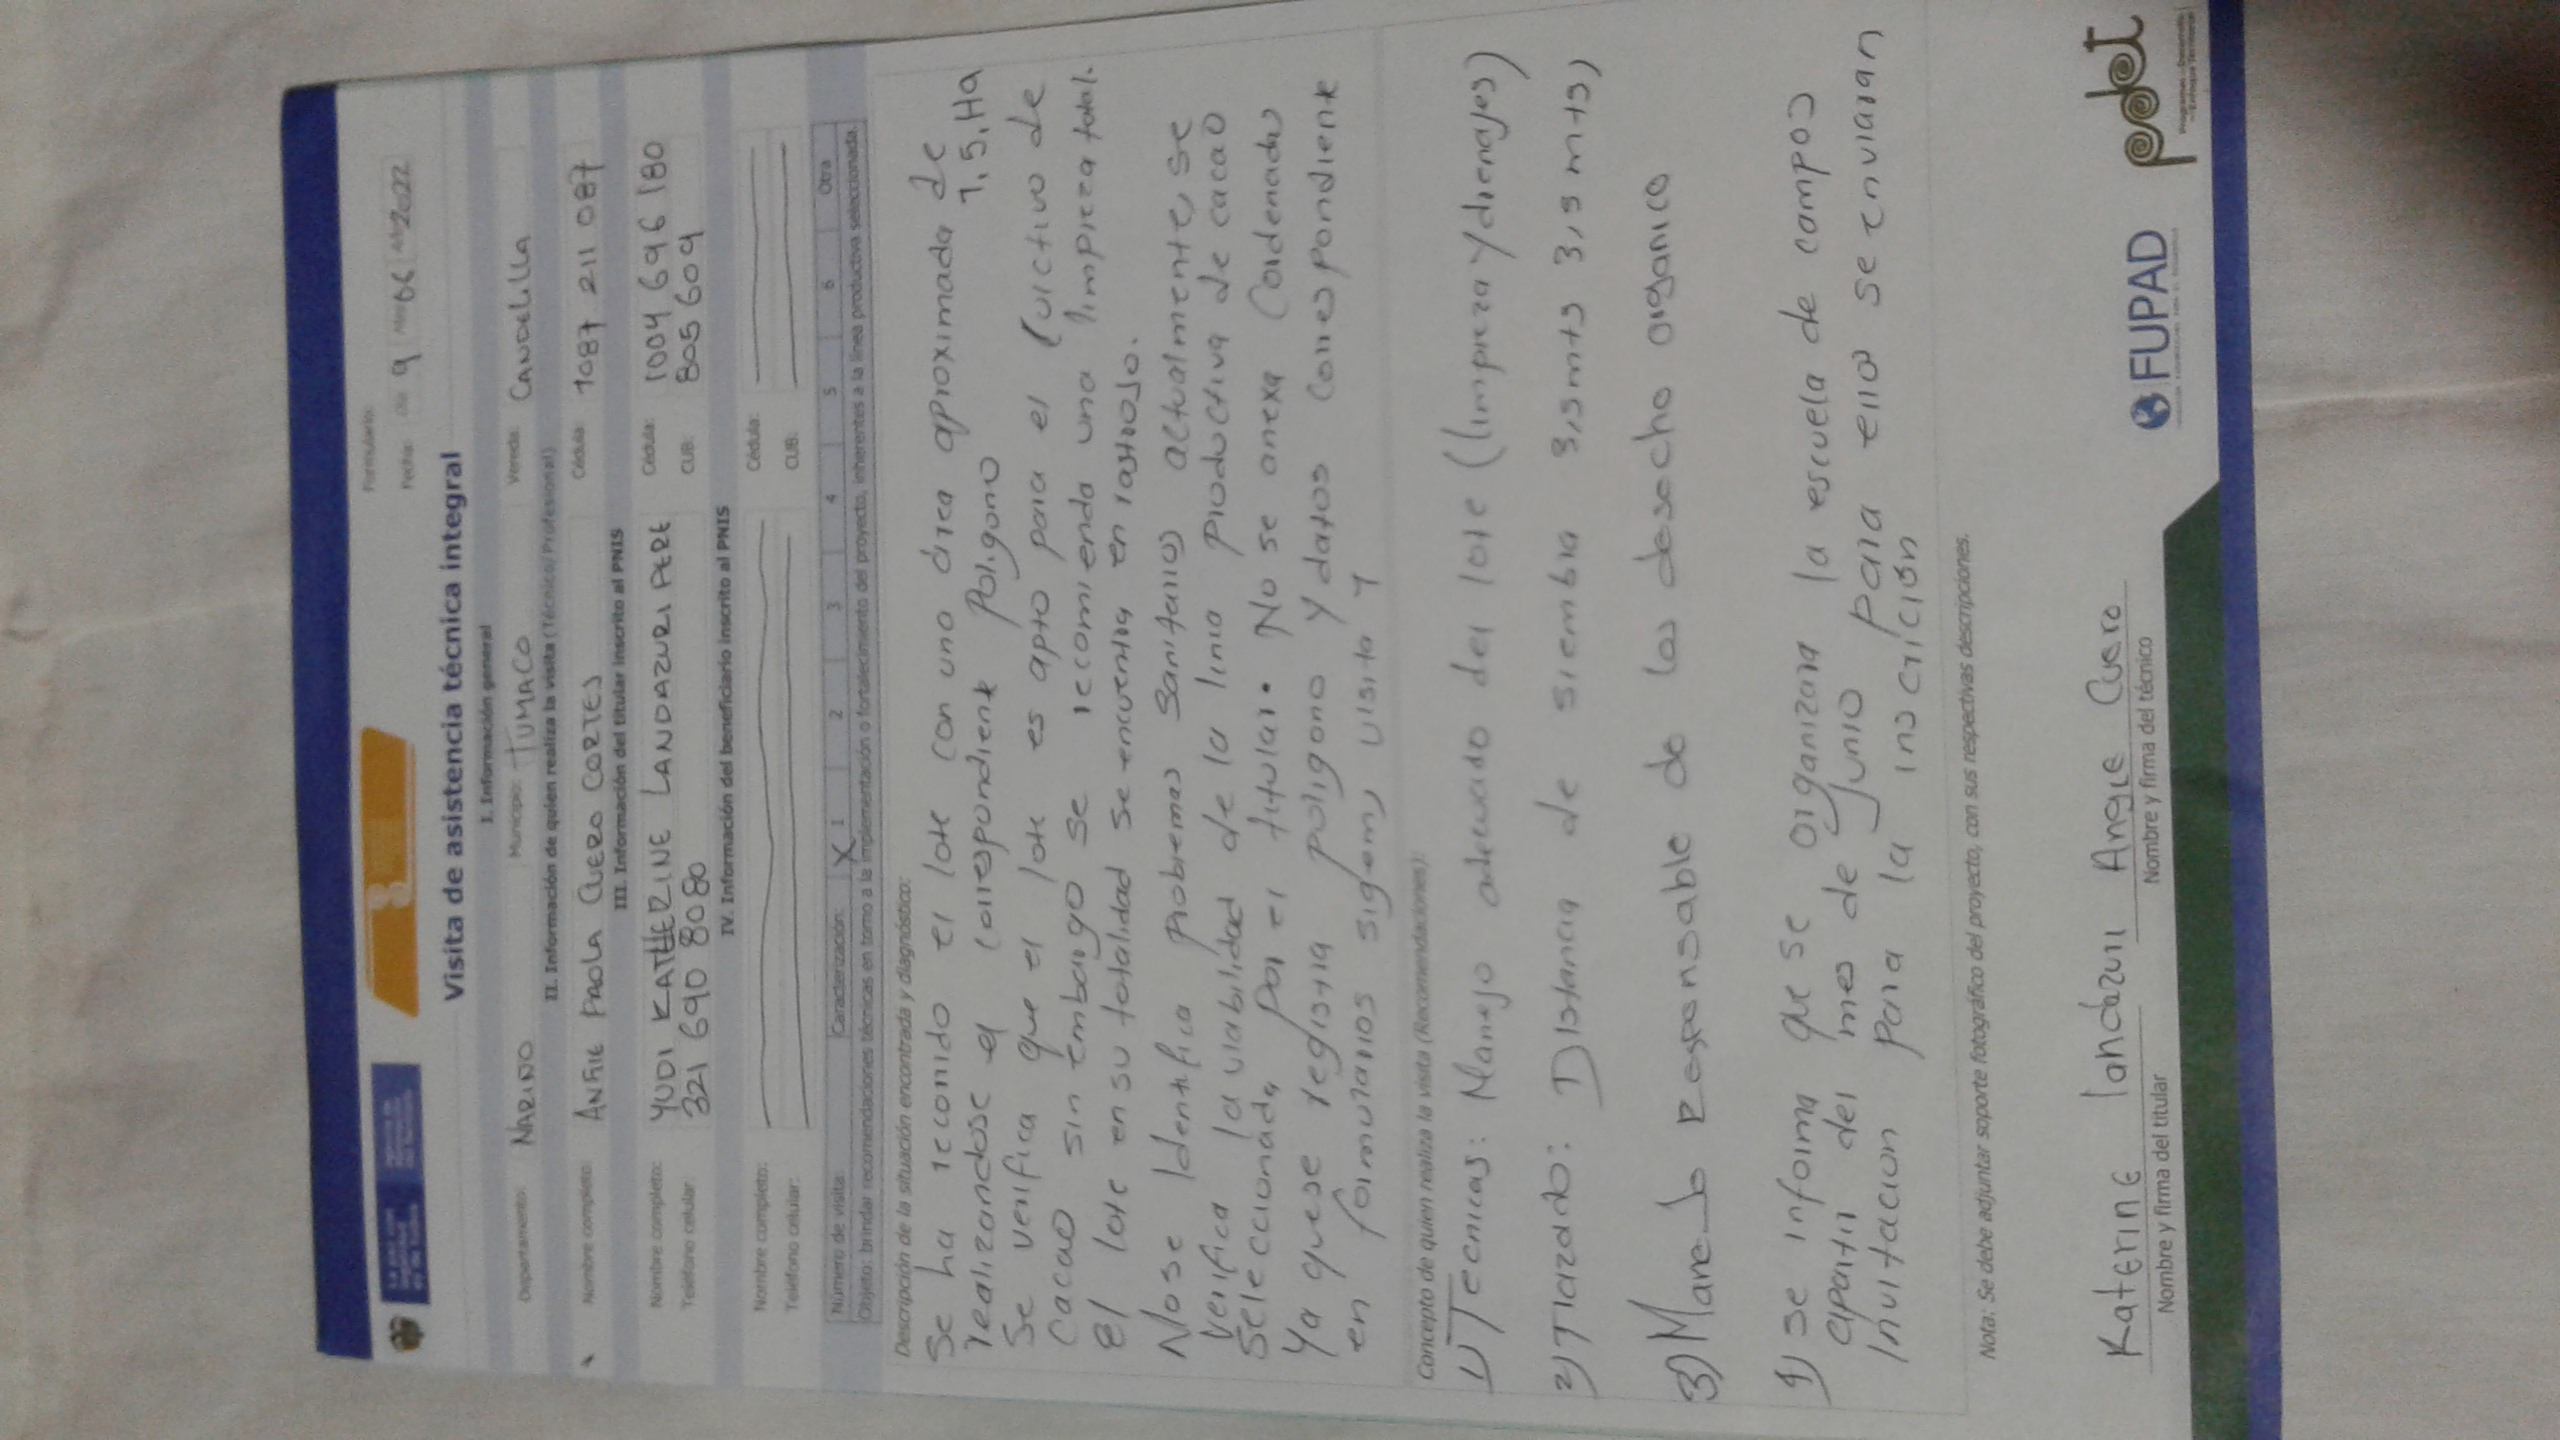 Formulario:
Fecha: Día 9 Mes 06 Año 2022
Visita de asistencia técnica integral
I. Información general
Departamento: NARIÑO Municipio: TUMACO Vereda: CANDELILLA
II. Información de quien realiza la visita (Técnico/Profesional)
Nombre completo: ANGIE PAOLA CUERO CORTES Cédula: 1087 211 087
III. Información del titular inscrito al PNIS
Nombre completo: YUDI KATHERINE LANDAZURI PERE Cédula: 1004 696 180
Teléfono celular: 321 690 8080 CUB: 805 609
IV. Información del beneficiario inscrito al PNIS
Nombre completo: Cédula:
Teléfono celular: CUB:
Número de visita: Caracterización: X 1 2 3 4 5 6 Otra
Objeto: brindar recomendaciones técnicas en torno a la implementación o fortalecimiento del proyecto, inherentes a la línea productiva seleccionada.
Descripción de la situación encontrada y diagnóstico:
Se ha reconido el lote con uno área aproximada de
realizandose el correspondiente Poligono 1,5, Ha
Se verifica que el lote es apto para el Cuictivo de
Cacao sin embargo se recomienda una limpieza total.
El lote en su totalidad se encuentra en rastrojo.
No se Identifica probremas Sanitarios actualmente, se
verifica la viabilidad de la linia productiva de cacao
Seleccionada, por el titular. No se anexa Coordenadas
Ya que se registra poligono Y datos correspondiente
en formularios sigem, visita 1
Concepto de quien realiza la visita (Recomendaciones):
1) Tecnicas: Manejo adecuado del lote (limpieza y drenajes)
2) Trazado: Distancia de siembra 3,5 mts 3,5 mts,
3) Manejo Responsable de los desecho organico
1) Se informa que se organizara la escuela de campos
apartir del mes de Junio para ello se enviaran
Invitacion para la inscrición
Nota: Se debe adjuntar soporte fotográfico del proyecto, con sus respectivas descripciones.
Katerine landazuri Angie Cuero
Nombre y firma del titular Nombre y firma del técnico
FUPAD
pdet